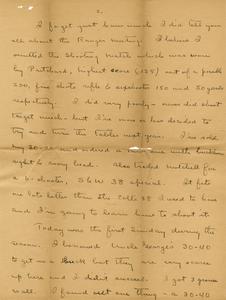 2.
I forget just how much I did tell you
all about the Ranger meeting. I believe I
omitted the shooting match which was won
by Pritchard, highest score (125) out of a possible
200, five shots rifle & sixshooter 150 and 50 yards
respectively. I did very poorly - never did about
target much - but I'm more or less decided to
try and turn the tables next year. I've sold
my 30-30 and ordered a new one with
sight & ivory bead. Also traded Mitchell for
a six shooter, S&W 38 special. It fits
me lots better than the Colts 38 I used to have
and I'm going to learn how to shoot it.
Today was the first Sunday during the
season. I borrowed Uncle George's 30-40
to get me a buck but they are very scarce
up here and I didn't succeed. I got 3 grouse
I found out one thing - a 30-40